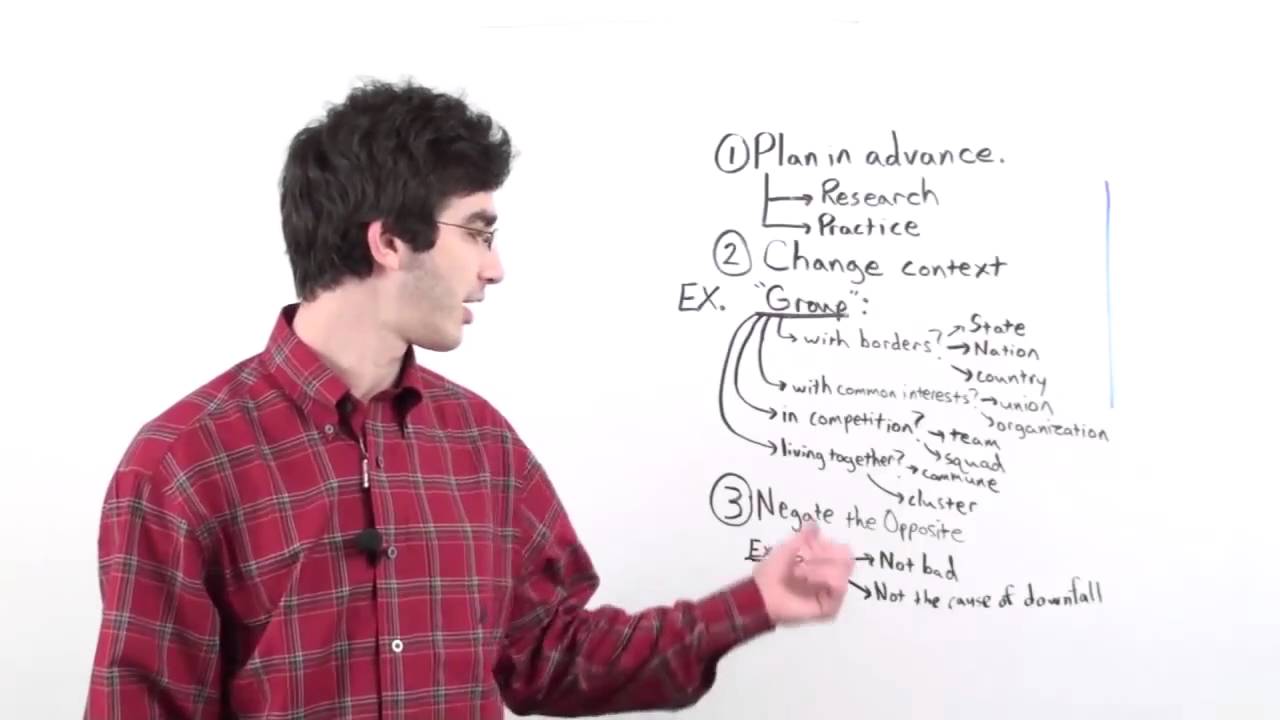 ① Plan in advance.
→ Research
→ Practice
② Change context
EX. "Group":
→ with borders? → State
→ Nation
→ country
→ with common interests? → union
→ organization
→ in competition? → team
→ squad
→ living together? → commune
→ cluster
③ Negate the Opposite
→ Not bad
→ Not the cause of downfall